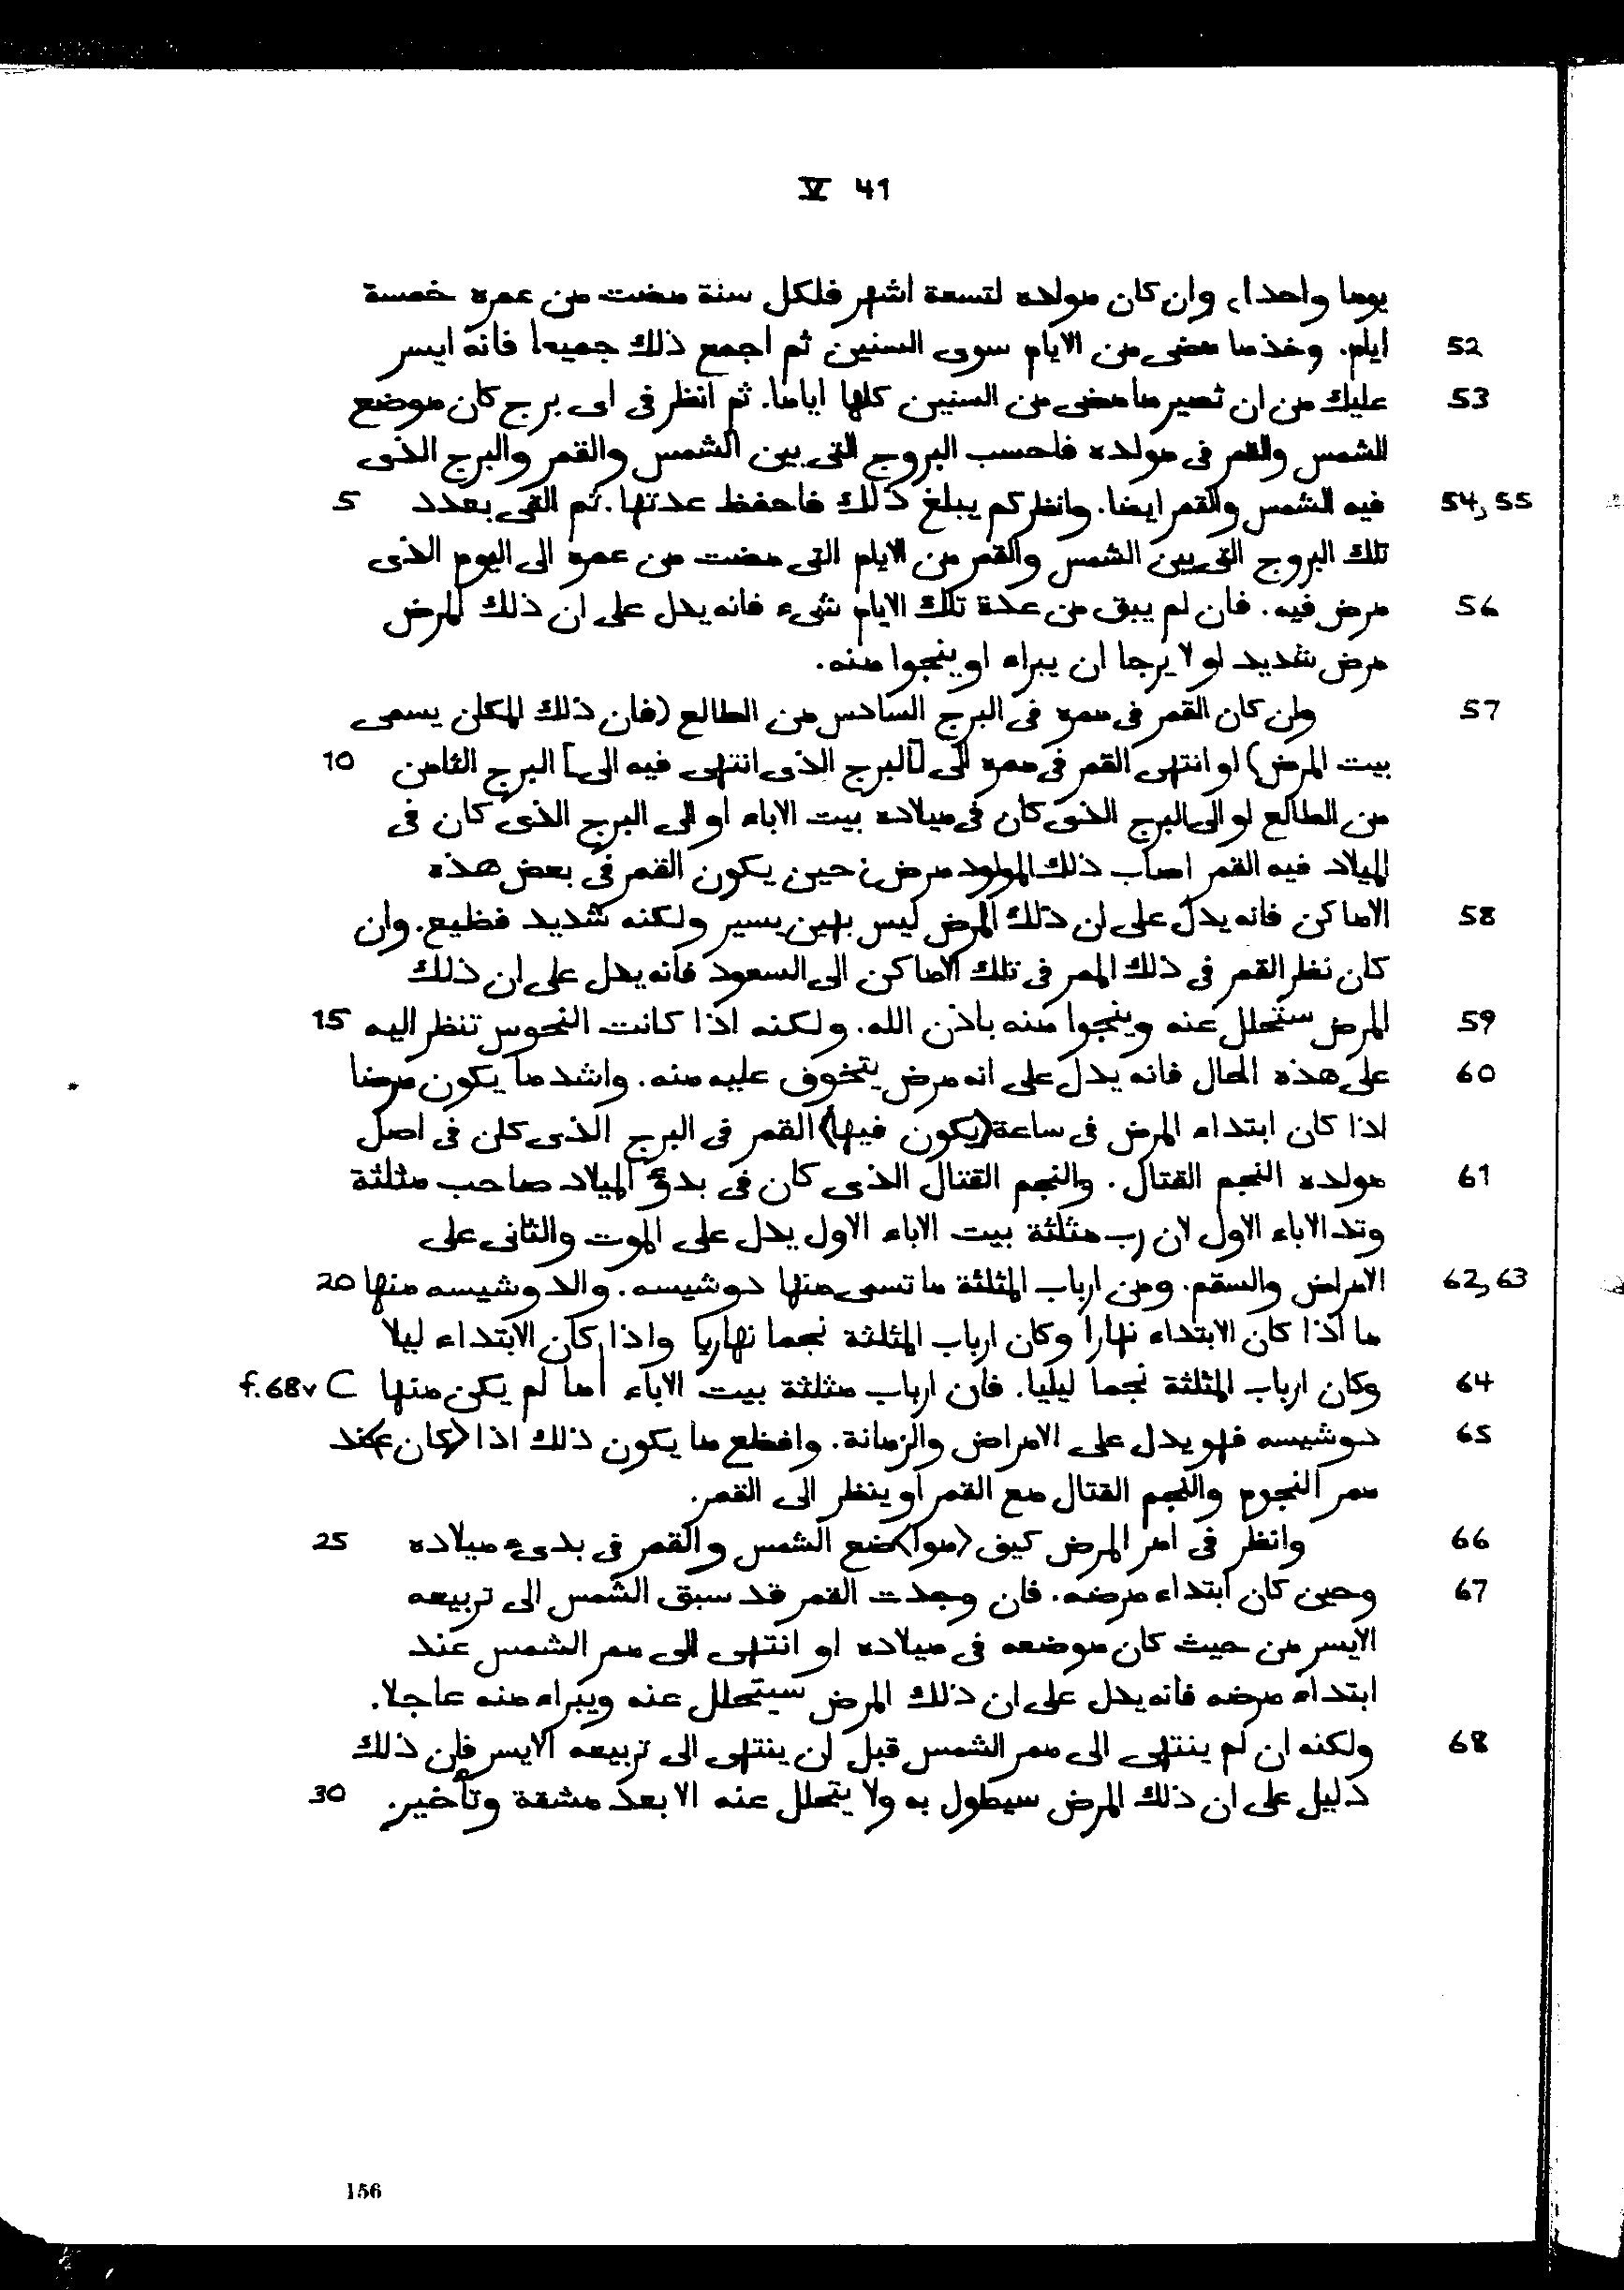 V 41
يوما واحدا، وان كان مولده لتسعة اشهر فلكل سنة مضت من عمره خمسة
52 ايام. وخذ ما مضى من الايام سوى السنين ثم اجمع ذلك جميعا فانه ايسر
53 عليك من ان تصير ما مضى من السنين كلها اياما. ثم انظر فى اى برج كان موضع
الشمس والقمر فى مولده فاحسب البروج التى بين الشمس والقمر والبرج الذى
54, 55 فيه الشمس والقمر ايضا. وانظر كم يبلغ ذلك فاحفظ عدتها. ثم القى بعدد 5
تلك البروج التى بين الشمس والقمر من الايام التى مضت من عمره الى اليوم الذى
56 مرض فيه. فان لم يبق من عدة تلك الايام شىء فانه يدل على ان ذلك المرض
مرض شديد او لا يرجا ان يبراء او ينجوا منه.
57 وان كان القمر فى ممره فى البرج السادس من الطالع (فان ذلك المكان يسمى
بيت المرض) او انتهى القمر فى ممره الى [البرج الذى انتهى فيه الى] البرج الثامن 10
من الطالع او الى البرج الذى كان فى ميلاده بيت الاباء او الى البرج الذى كان فى
الميلاد فيه القمر اصاب ذلك المولود مرض، حين يكون القمر فى بعض هذه
58 الاماكن فانه يدل على ان ذلك المرض ليس بهين يسير ولكنه شديد فظيع. وان
كان نظر القمر فى ذلك الممر فى تلك الاماكن الى السعود فانه يدل على ان ذلك
59 المرض ستحلل عنه وينجوا منه باذن الله. ولكنه اذا كانت النحوس تنظر اليه 15
60 على هذه الحال فانه يدل على انه مرض يتخوف عليه منه. واشد ما يكون مرضا
اذا كان ابتداء المرض فى ساعة ⟨يكون فيها⟩ القمر فى البرج الذى كان فى اصل
61 مولده النجم القتال. والنجم القتال الذى كان فى بدؤ الميلاد صاحب مثلثة
وتد الاباء الاول لان رب مثلثة بيت الاباء الاول يدل على الموت والثانى على
62, 63 الامراض والسقم. ومن ارباب المثلثة ما تسمى منها دوشيسه. والدوشيسه منها 20
ما اذا كان الابتداء نهارا وكان ارباب المثلثة نجما نهاريا واذا كان الابتداء ليلا
64 وكان ارباب المثلثة نجما ليليا. فان ارباب مثلثة بيت الاباء اما لم يكن منها f.68v C
65 دوشيسه فهو يدل على الامراض والزمانة. وافظع ما يكون ذلك اذا ⟨كان ع⟩ند
ممر النجوم والنجم القتال مع القمر او ينظر الى القمر.
66 وانظر فى امر المرض كيف ⟨موا⟩ضع الشمس والقمر فى بدىء ميلاده 25
67 وحين كان ابتداء مرضه. فان وجدت القمر قد سبق الشمس الى تربيعه
الايسر من حيث كان موضعه فى ميلاده او انتهى الى ممر الشمس عند
ابتداء مرضه فانه يدل على ان ذلك المرض سيتحلل عنه ويبراء منه عاجلا.
68 ولكنه ان لم ينتهى الى ممر الشمس قبل ان ينتهى الى تربيعه الايسر فان ذلك
دليل على ان ذلك المرض سيطول به ولا يتحلل عنه الا بعد مشقة وتأخير. 30
156